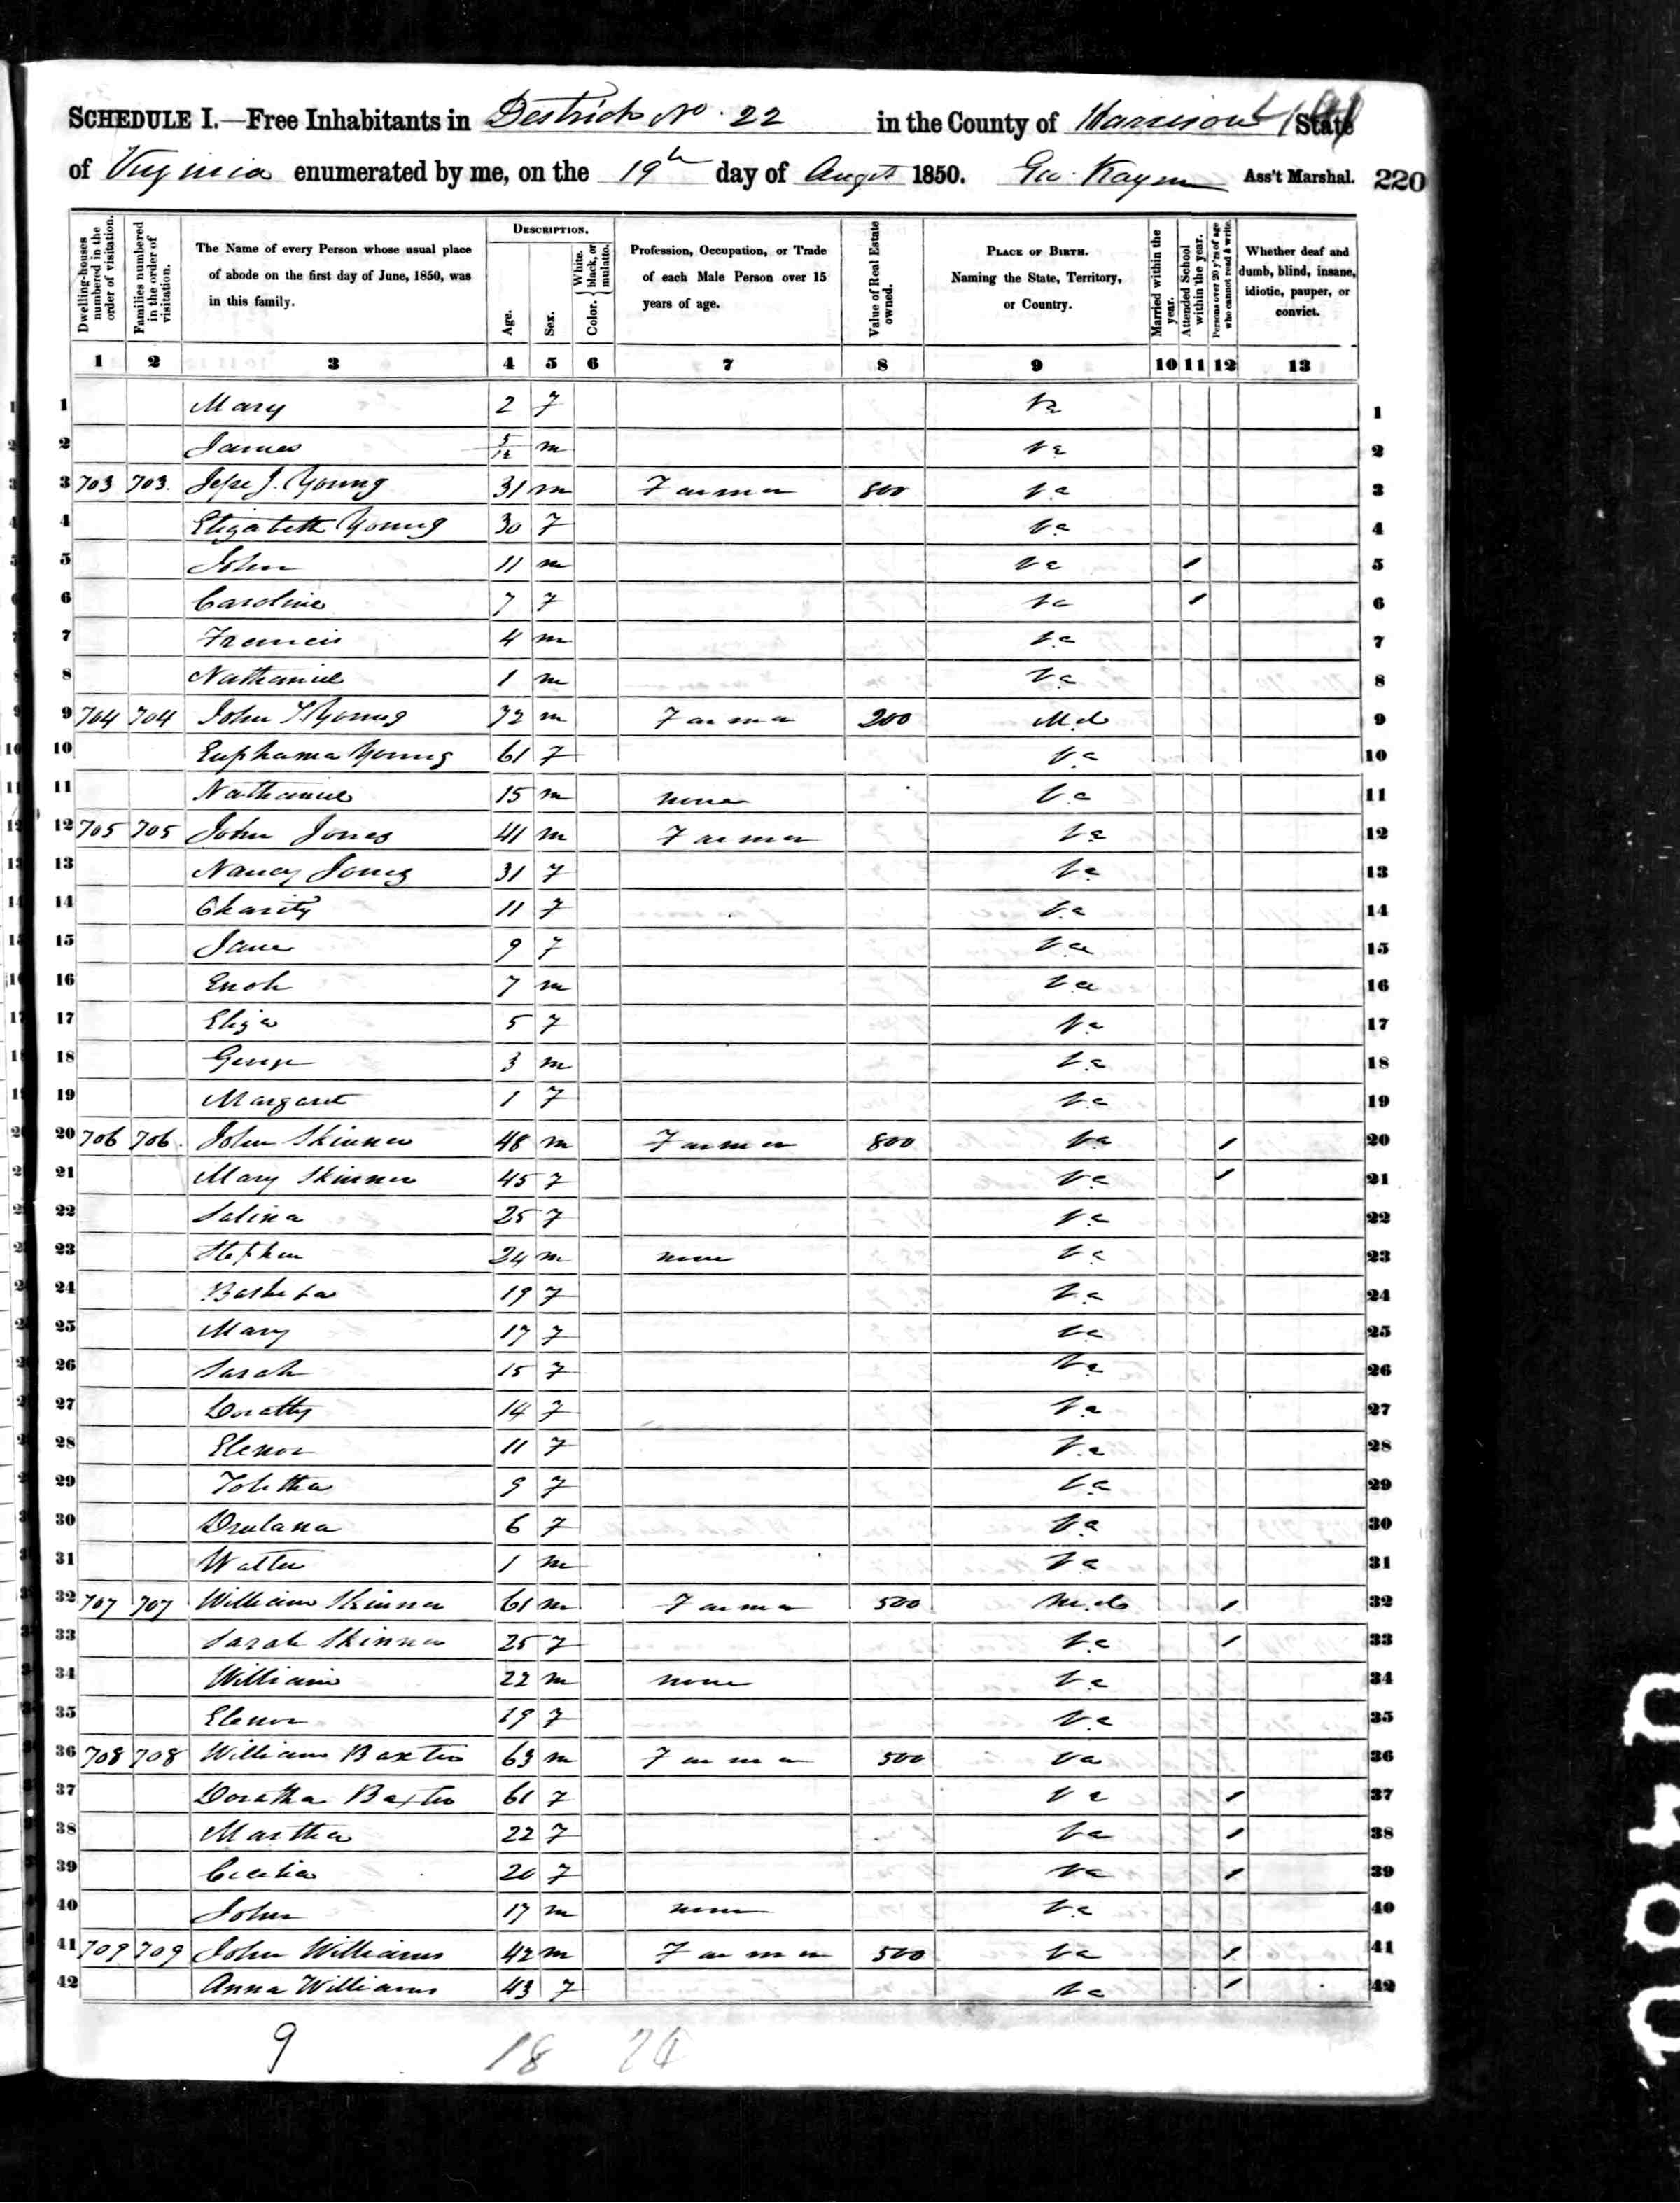 SCHEDULE I.—Free Inhabitants in Destrict No. 22 in the County of Harrison State
of Virginia enumerated by me, on the 19th day of Augst 1850. Ass't Marshal. 220
Dwelling-houses numbered in the order of visitation. Families numbered in the order of visitation. The Name of every Person whose usual place of abode on the first day of June, 1850, was in this family. DESCRIPTION. Age. Sex. Color. { White, black, or mulatto. Profession, Occupation, or Trade of each Male Person over 15 years of age. Value of Real Estate owned. PLACE OF BIRTH. Naming the State, Territory, or Country. Married within the year. Attended School within the year. Persons over 20 y'rs of age who cannot read & write. Whether deaf and dumb, blind, insane, idiotic, pauper, or convict.
1 2 3 4 5 6 7 8 9 10 11 12 13
1 Mary 2 F Va 1
2 James 5/12 m Va 2
3 703 703 Jesse J. Young 31 m Farmer 800 Va 3
4 Elizabeth Young 30 F Va 4
5 John 11 m Va / 5
6 Caroline 7 F Va / 6
7 Francis 4 m Va 7
8 Nathaniel 1 m Va 8
9 704 704 John Young 72 m Farmer 200 Md 9
10 Euphama Young 61 F Va 10
11 Nathaniel 15 m none Va 11
12 705 705 John Jones 41 m Farmer Va 12
13 Nancy Jones 31 F Va 13
14 Charity 11 F Va 14
15 Jane 9 F Va 15
16 Enoh 7 m Va 16
17 Eliza 5 F Va 17
18 George 3 m Va 18
19 Margaret 1 F Va 19
20 706 706 John Skinner 48 m Farmer 800 Va / 20
21 Mary Skinner 45 F Va / 21
22 Salina 25 F Va 22
23 Stephen 24 m none Va 23
24 F 19 Va 24
25 Mary 17 F Va 25
26 Sarah 15 F Va 26
27 Doratty 14 F Va 27
28 Elenor 11 F Va 28
29 Tobitha 9 F Va 29
30 Drulana 6 F Va 30
31 Walter 1 m Va 31
32 707 707 William Skinner 61 m Farmer 500 Md / 32
33 Sarah Skinner 25 F Va / 33
34 William 22 m none Va 34
35 Elenor 19 F Va 35
36 708 708 William Baxter 63 m Farmer 500 Va 36
37 Doratha Baxter 61 F Va / 37
38 Martha 22 F Va / 38
39 Cecelia 20 F Va / 39
40 John 17 m none Va 40
41 709 709 John Williams 42 m Farmer 500 Va / 41
42 Anna Williams 43 F Va / 42
9 18 24